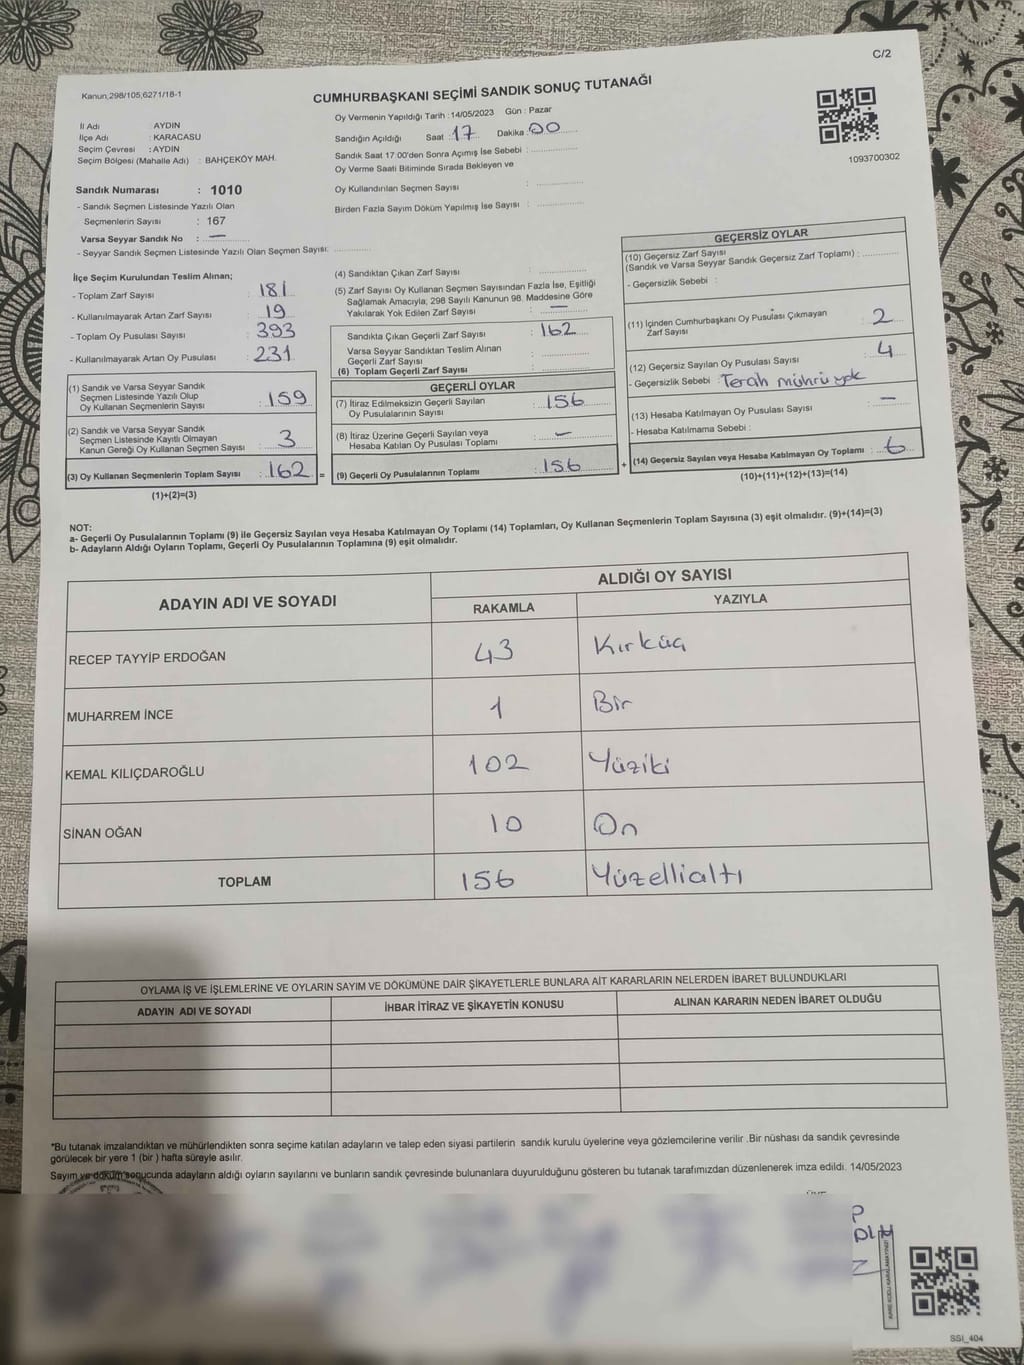 C/2
Kanun,298/105,6271/18-1
CUMHURBAŞKANI SEÇİMİ SANDIK SONUÇ TUTANAĞI
Oy Vermenin Yapıldığı Tarih : 14/05/2023 Gün : Pazar
Sandığın Açıldığı Saat : 17 Dakika : 00
Sandık Saat 17:00'den Sonra Açımış İse Sebebi :
Oy Verme Saati Bitiminde Sırada Bekleyen ve
Oy Kullandırılan Seçmen Sayısı :
Birden Fazla Sayım Döküm Yapılmış İse Sayısı :
1093700302
İl Adı : AYDIN
İlçe Adı : KARACASU
Seçim Çevresi : AYDIN
Seçim Bölgesi (Mahalle Adı) : BAHÇEKÖY MAH.
Sandık Numarası : 1010
- Sandık Seçmen Listesinde Yazılı Olan
Seçmenlerin Sayısı : 167
Varsa Seyyar Sandık No : —
- Seyyar Sandık Seçmen Listesinde Yazılı Olan Seçmen Sayısı:
İlçe Seçim Kurulundan Teslim Alınan;
- Toplam Zarf Sayısı : 181
- Kullanılmayarak Artan Zarf Sayısı : 19
- Toplam Oy Pusulası Sayısı : 393
- Kullanılmayarak Artan Oy Pusulası : 231
(1) Sandık ve Varsa Seyyar Sandık
Seçmen Listesinde Yazılı Olup
Oy Kullanan Seçmenlerin Sayısı : 159
(2) Sandık ve Varsa Seyyar Sandık
Seçmen Listesinde Kayıtlı Olmayan
Kanun Gereği Oy Kullanan Seçmen Sayısı : 3
(3) Oy Kullanan Seçmenlerin Toplam Sayısı : 162 =
(1)+(2)=(3)
(4) Sandıktan Çıkan Zarf Sayısı :
(5) Zarf Sayısı Oy Kullanan Seçmen Sayısından Fazla İse, Eşitliği
Sağlamak Amacıyla; 298 Sayılı Kanunun 98. Maddesine Göre
Yakılarak Yok Edilen Zarf Sayısı : —
Sandıkta Çıkan Geçerli Zarf Sayısı : 162
Varsa Seyyar Sandıktan Teslim Alınan
Geçerli Zarf Sayısı :
(6) Toplam Geçerli Zarf Sayısı :
GEÇERLİ OYLAR
(7) İtiraz Edilmeksizin Geçerli Sayılan
Oy Pusulalarının Sayısı : 156
(8) İtiraz Üzerine Geçerli Sayılan veya
Hesaba Katılan Oy Pusulası Toplamı : —
(9) Geçerli Oy Pusulalarının Toplamı : 156 +
GEÇERSİZ OYLAR
(10) Geçersiz Zarf Sayısı
(Sandık ve Varsa Seyyar Sandık Geçersiz Zarf Toplamı) :
- Geçersizlik Sebebi :
(11) İçinden Cumhurbaşkanı Oy Pusulası Çıkmayan
Zarf Sayısı : 2
(12) Geçersiz Sayılan Oy Pusulası Sayısı : 4
- Geçersizlik Sebebi : Tercih mührü yok
(13) Hesaba Katılmayan Oy Pusulası Sayısı : —
- Hesaba Katılmama Sebebi :
(14) Geçersiz Sayılan veya Hesaba Katılmayan Oy Toplamı : 6
(10)+(11)+(12)+(13)=(14)
NOT:
a- Geçerli Oy Pusulalarının Toplamı (9) ile Geçersiz Sayılan veya Hesaba Katılmayan Oy Toplamı (14) Toplamları, Oy Kullanan Seçmenlerin Toplam Sayısına (3) eşit olmalıdır. (9)+(14)=(3)
b- Adayların Aldığı Oyların Toplamı, Geçerli Oy Pusulalarının Toplamına (9) eşit olmalıdır.
ADAYIN ADI VE SOYADI
ALDIĞI OY SAYISI
RAKAMLA YAZIYLA
RECEP TAYYİP ERDOĞAN 43 Kırküç
MUHARREM İNCE 1 Bir
KEMAL KILIÇDAROĞLU 102 Yüziki
SİNAN OĞAN 10 On
TOPLAM 156 Yüzellialtı
OYLAMA İŞ VE İŞLEMLERİNE VE OYLARIN SAYIM VE DÖKÜMÜNE DAİR ŞİKAYETLERLE BUNLARA AİT KARARLARIN NELERDEN İBARET BULUNDUKLARI
ADAYIN ADI VE SOYADI İHBAR İTİRAZ VE ŞİKAYETİN KONUSU ALINAN KARARIN NEDEN İBARET OLDUĞU
*Bu tutanak imzalandıktan ve mühürlendikten sonra seçime katılan adayların ve talep eden siyasi partilerin sandık kurulu üyelerine veya gözlemcilerine verilir .Bir nüshası da sandık çevresinde
görülecek bir yere 1 (bir ) hafta süreyle asılır.
Sayım ve döküm sonucunda adayların aldığı oyların sayılarını ve bunların sandık çevresinde bulunanlara duyurulduğunu gösteren bu tutanak tarafımızdan düzenlenerek imza edildi. 14/05/2023
SSI_404